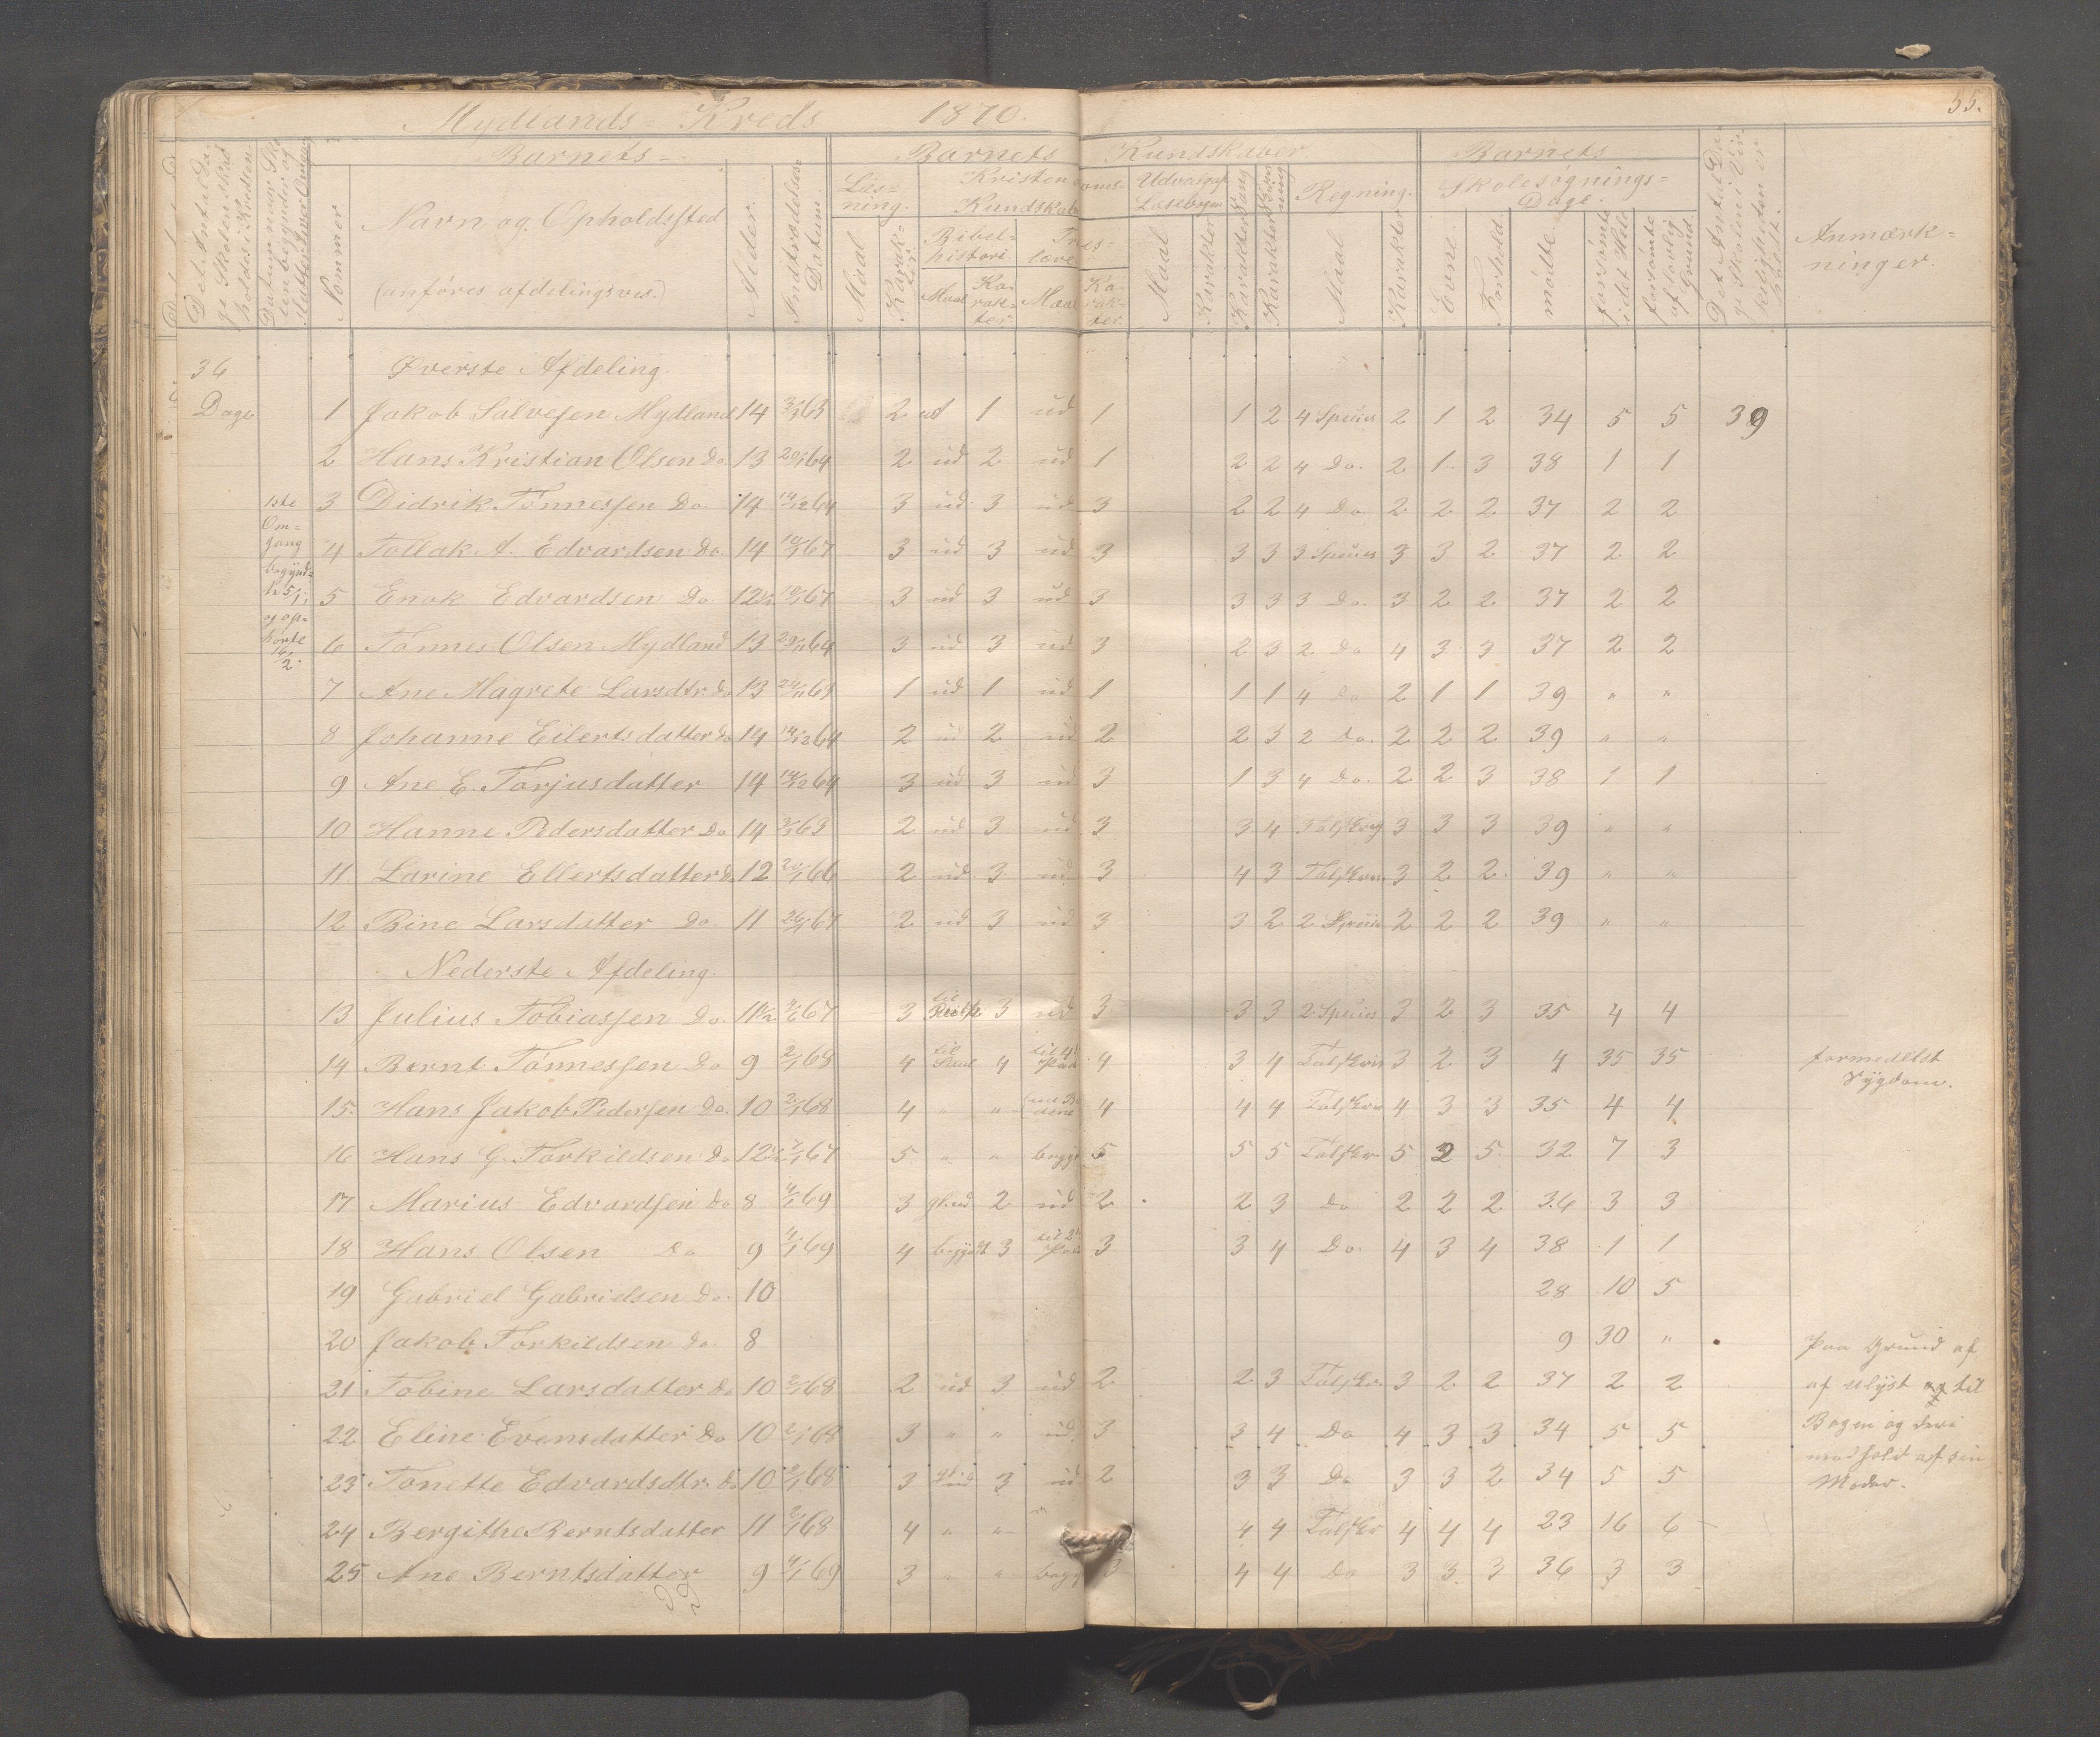 Mydlands= Kreds 1870.
55.
Det Antal Dage Skolen skal holdes i Kredsen.
Nommer.
Barnets=
Navn og Opholdssted
(anføres afdelingsvis.)
Alder.
Indtrædelses= Datum.
Barnets Kundskaber.
Læsning.
Maal
Karakter
Kristendoms= Kundskab
Bibelhistori.
Maal
Karakter
Troeslære
Maal
Karakter.
Udvalgte Læsebogen
Maal
Karakter
Sang
Karakter
Skrivning
Karakter
Regning.
Maal
Karakter
Barnets Skolesøgnings= Dage.
Evne.
Forhold.
mødte.
forsømte i det Hele
forsømte af lovlig Grund.
Det Antal Dage Skolen i Virkeligheden er holdt.
Anmærkninger.
36 Øverste Afdeling.
Dage 1 Jakob Salvesen Mydland 14 3/3 63 2 ud 1 ud 1 1 2 4 Speties 2 1 2 34 5 5 39
2 Hans Kristian Olsen Do 13 20/1 64 2 ud 2 ud 1 2 2 4 Do. 2 1 3 38 1 1
3 Didrik Tønnessen Do. 14 14/12 64 3 ud 3 ud 3 2 2 4 Do 2 2 2 37 2 2
1ste Om= gang begynd= te 5/1 og op= hørte 16/2.
4 Tollak A. Edvardsen Do. 14 10/1 67 3 ud 3 ud 3 3 3 3 Speties 3 3 2 37 2 2
5 Enok Edvardsen Do 12½ 10/1 67 3 ud 3 ud 3 3 3 3 Do. 3 2 2 37 2 2
6 Tønnes Olsen Mydland 13 29/11 64 3 ud 3 ud 3 2 3 2 Do 4 3 3 37 2 2
7 Ane Magrete Larsdtr. Do 13 1 ud 1 ud 1 1 1 4 Do 2 1 1 39 " "
8 Johanne Eilertsdatter Do 14 14/12 64 2 ud 2 ud 2 2 3 2 Do. 2 2 2 39 " "
9 Ane E. Torjusdatter 14 14/12 64 3 ud 3 ud 3 1 3 4 Do. 2 2 3 38 1 1
10 Hanne Pedersdatter Do 14 3/3 63 2 ud 3 ud 3 3 4 3 3 3 39 " "
11 Larine Ellertsdatter Do. 12 20/1 66 2 ud 3 ud 3 4 3 Talskriv 3 2 2 39 " "
12 Bine Larsdatter Do. 11 26/1 67 2 ud 3 ud 3 3 2 2 Speties 2 2 2 39 " "
Nederste Afdeling.
13 Julius Tobiassen Do. 11½ 67 3 til 3 ud 3 3 3 2 Speties 3 2 3 35 4 4
14 Bernt Tønnessen Do 9 2/1 68 4 til Saul 4 til 4de Part 4 3 4 Talskriv 3 2 3 4 35 35 formedelst Sygdom.
15. Hans Jakob Pedersen Do. 10 2/1 68 4 " " 4 4 4 Talskriv 4 3 3 35 4 4
16 Hans G. Torkildsen Do 12½ 67 5 " " begy 5 5 5 Talskr 5 2 5 32 7 3
17 Marius Edvardsen Do 8 4/1 69 3 gl. ud 2 ud 2 2 3 Do 2 2 2 36 3 3
18 Hans Olsen Do 9 4/1 69 4 begyndt 3 til 2den Part 3 3 4 Do. 4 3 4 38 1 1
19 Gabriel Gabrielsen Do. 10 28 10 5
20 Jakob Torkildsen Do. 8 9 30 " Paa Grund af
21 Tobine Larsdatter Do 10 2/1 68 2 ud 3 ud 2 2 3 Talskr. 3 2 2 37 2 2 af ulyst og til
22 Eline Evensdatter Do 10 2/1 68 3 " " ud 3 3 4 Do 4 3 3 34 5 5 Bogen og deri
23 Tonette Edvardsdtr. Do 10 2/1 68 3 gl. ud 3 ud 2 3 3 Do 3 3 2 34 5 5 medhold af sin Moder.
24 Bergithe Berntsdatter 11 2/1 68 4 " " 4 4 Talskr 4 4 4 23 16 6
25 Ane Berntsdatter 9 4/1 69 3 " " begy 3 4 4 Do 3 3 3 36 3 3